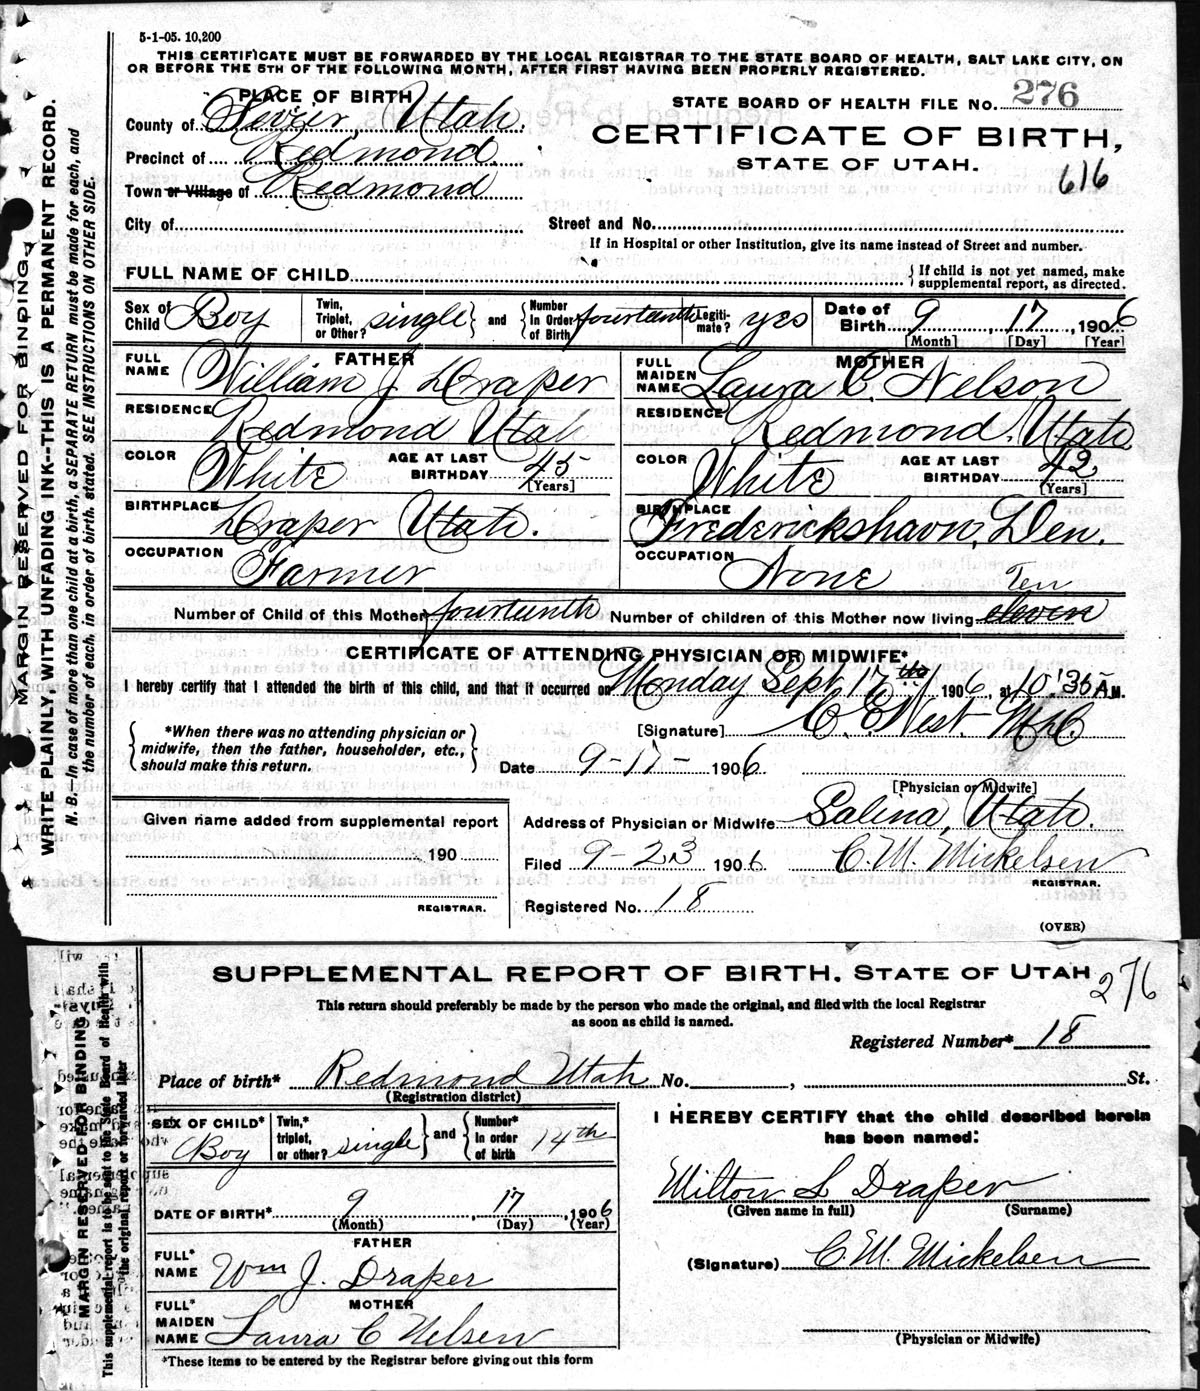 5-1-05. 10,200
THIS CERTIFICATE MUST BE FORWARDED BY THE LOCAL REGISTRAR TO THE STATE BOARD OF HEALTH, SALT LAKE CITY, ON
OR BEFORE THE 5TH OF THE FOLLOWING MONTH, AFTER FIRST HAVING BEEN PROPERLY REGISTERED.
PLACE OF BIRTH
STATE BOARD OF HEALTH FILE NO. 276
County of Sevier, Utah.
CERTIFICATE OF BIRTH,
Precinct of Redmond
STATE OF UTAH.
616
Town or Village of Redmond
City of
Street and No.
If in Hospital or other Institution, give its name instead of Street and number.
FULL NAME OF CHILD
{ If child is not yet named, make
supplemental report, as directed.
Sex of Child Boy
Twin, Triplet, or Other? single } and { Number In Order of Birth fourteenth
Legiti-mate? yes
Date of Birth 9, 17, 1906
[Month] [Day] [Year]
FATHER
FULL NAME William J Draper
RESIDENCE Redmond Utah
COLOR White AGE AT LAST BIRTHDAY 45
[Years]
BIRTHPLACE Draper Utah.
OCCUPATION Farmer
MOTHER
FULL MAIDEN NAME Laura C. Nelson
RESIDENCE Redmond, Utah
COLOR White AGE AT LAST BIRTHDAY 42
[Years]
BIRTHPLACE Frederickshavn, Den.
OCCUPATION None
Ten
Number of Child of this Mother fourteenth Number of children of this Mother now living eleven
CERTIFICATE OF ATTENDING PHYSICIAN OR MIDWIFE*
I hereby certify that I attended the birth of this child, and that it occurred on Monday Sept 17th, 1906, at 10:35 A.M.
{ *When there was no attending physician or
midwife, then the father, householder, etc.,
should make this return. }
[Signature] C. E. West
Date 9-17- 1906
[Physician or Midwife]
Given name added from supplemental report
190
REGISTRAR.
Address of Physician or Midwife Salina, Utah.
Filed 9-23 1906 C. M. Mickelsen
REGISTRAR.
Registered No. 18
(OVER)
MARGIN RESERVED FOR BINDING.
WRITE PLAINLY, WITH UNFADING INK--THIS IS A PERMANENT RECORD.
N. B.—In case of more than one child at a birth, a SEPARATE RETURN must be made for each, and
the number of each, in order of birth, stated. SEE INSTRUCTIONS ON OTHER SIDE.
SUPPLEMENTAL REPORT OF BIRTH, STATE OF UTAH
276
This return should preferably be made by the person who made the original, and filed with the local Registrar
as soon as child is named.
Registered Number* 18
Place of birth* Redmond Utah No. , St.
(Registration district)
SEX OF CHILD* Boy
Twin,* triplet, or other? single } and { Number* in order of birth 14th
DATE OF BIRTH* 9, 17, 1906
(Month) (Day) (Year)
FATHER
FULL* NAME Wm J. Draper
MOTHER
FULL* MAIDEN NAME Laura C Nelsen
*These items to be entered by the Registrar before giving out this form
I HEREBY CERTIFY that the child described herein
has been named:
Milton L Draper
(Given name in full) (Surname)
(Signature) C. M. Mickelsen
(Physician or Midwife)
MARGIN RESERVED FOR BINDING
This supplemental report is to be sent to the State Board of Health with
the original report or forwarded later